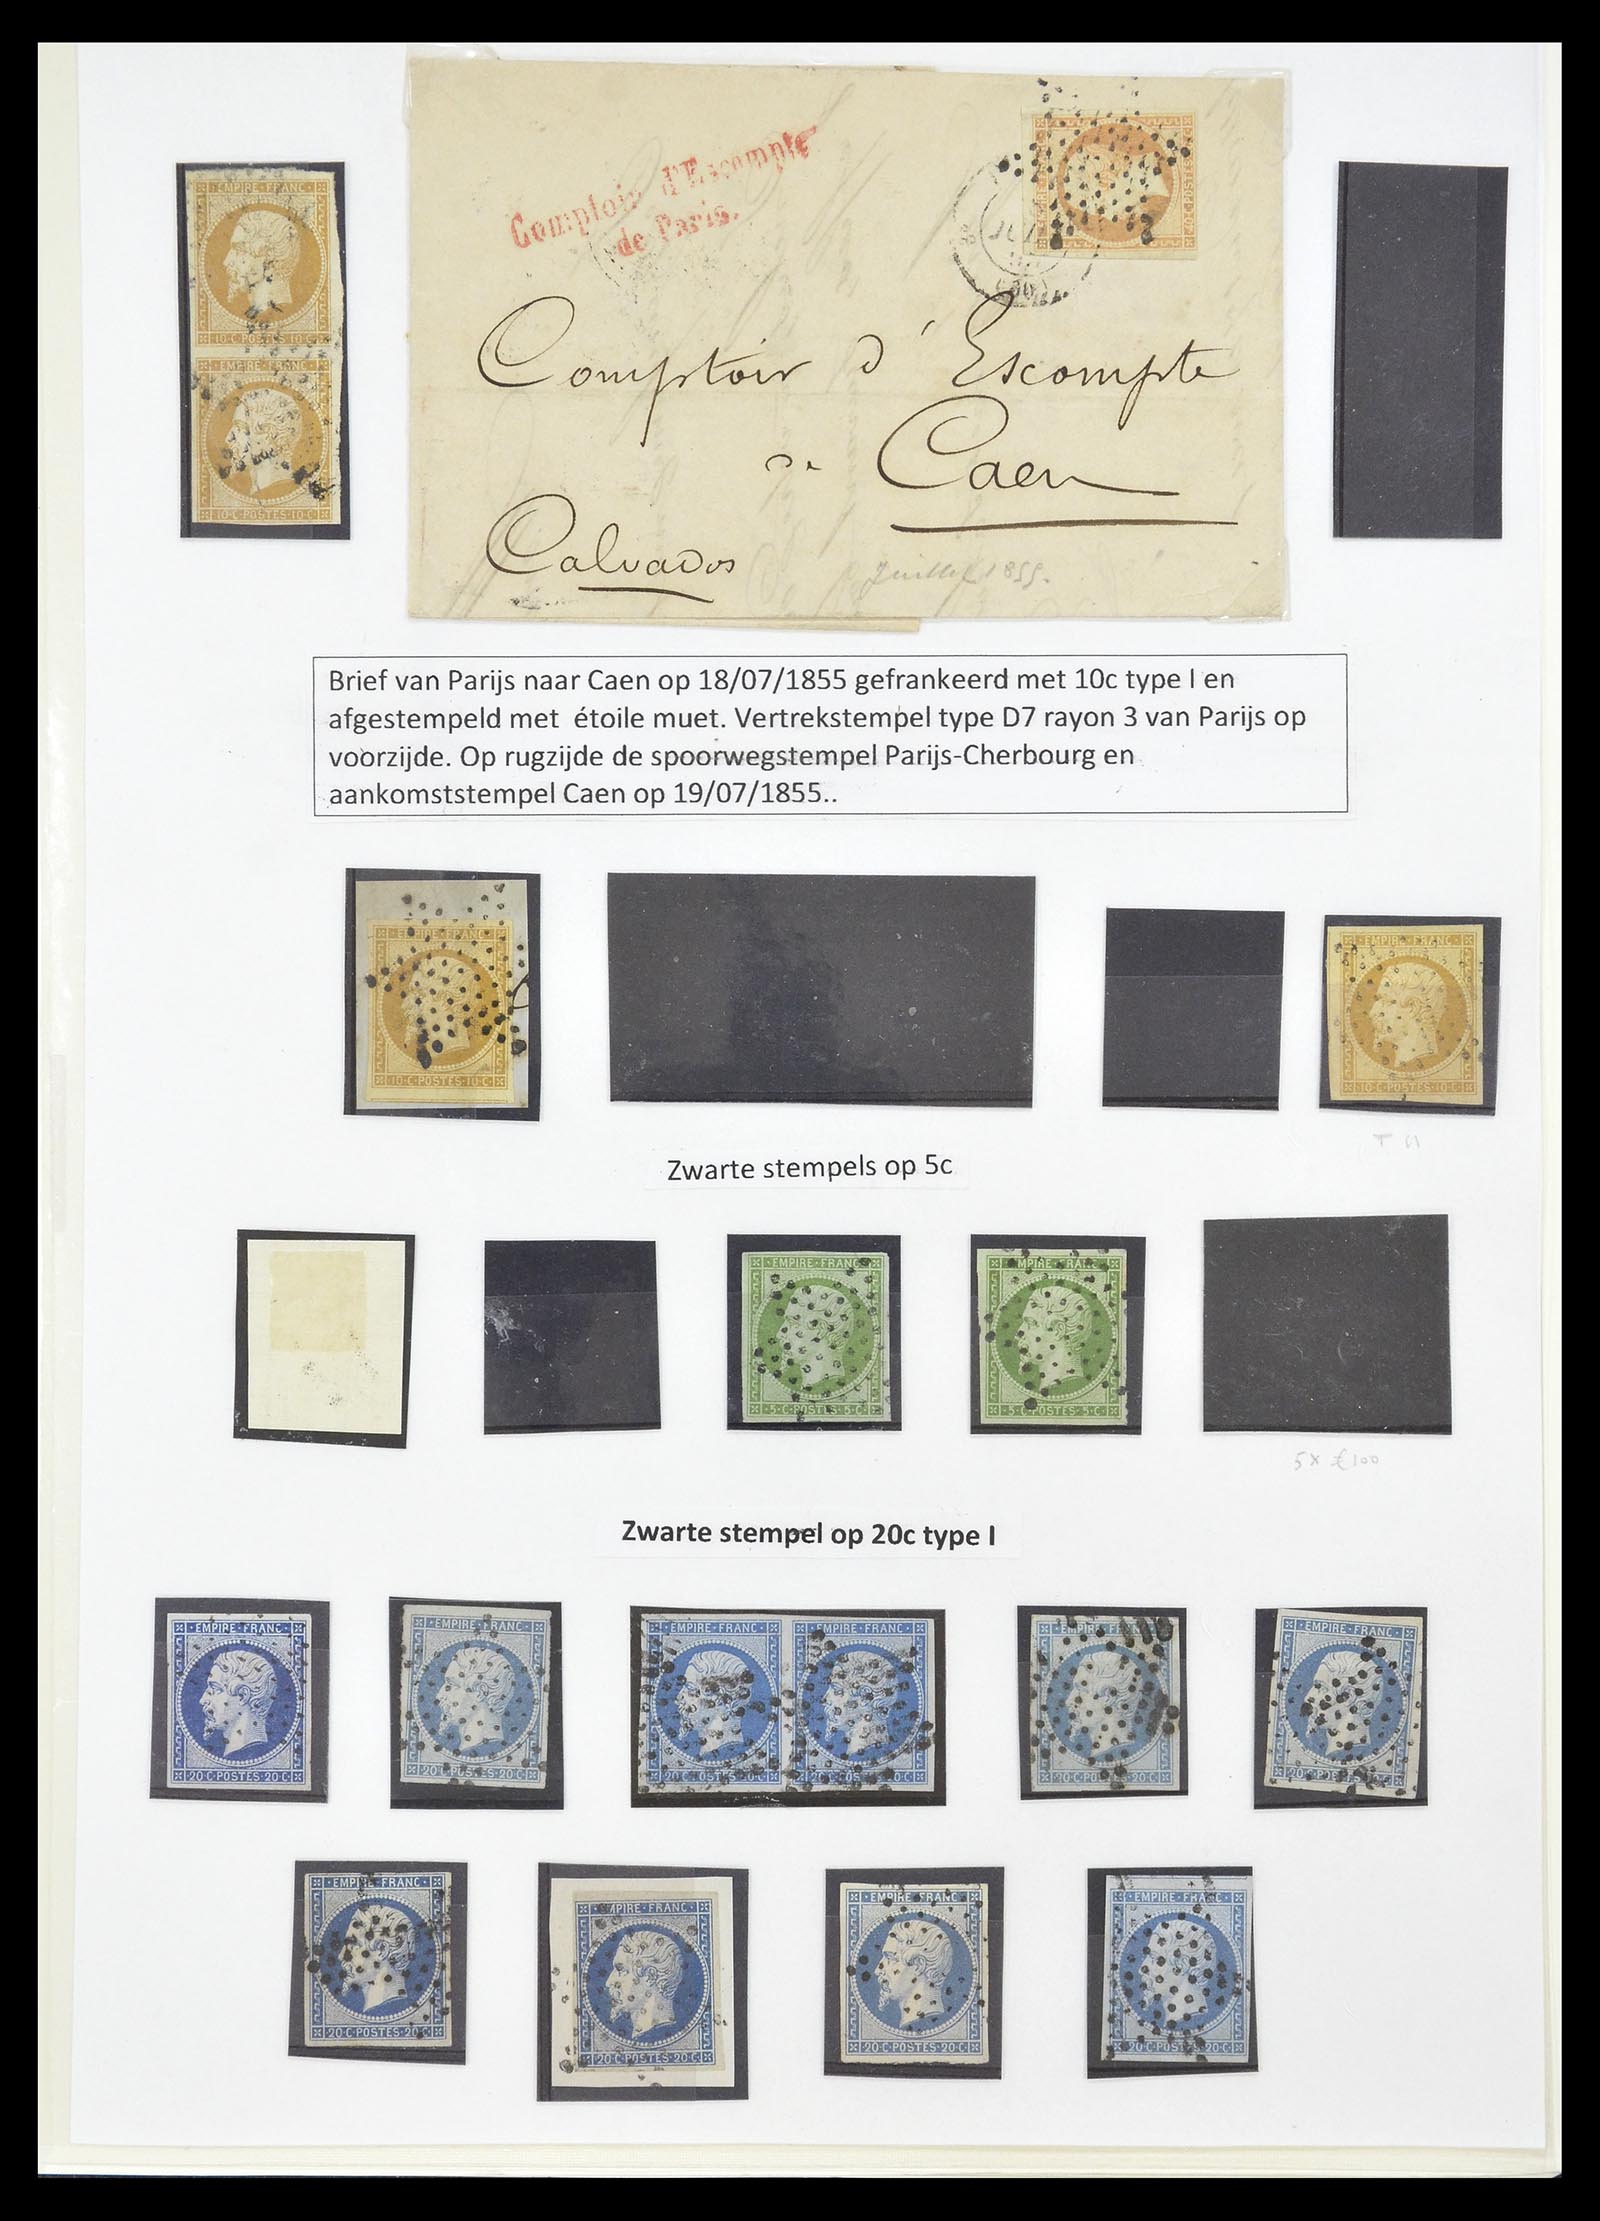 EMPIRE·FRANC·
10·C·POSTES·10·C
EMPIRE·FRANC·
10·C·POSTES·10·C
Comptoir d'Escompte
de Paris.
Comptoir d'Escompte
de Caen
Calvados
Juillet 1855.
Brief van Parijs naar Caen op 18/07/1855 gefrankeerd met 10c type I en
afgestempeld met étoile muet. Vertrekstempel type D7 rayon 3 van Parijs op
voorzijde. Op rugzijde de spoorwegstempel Parijs-Cherbourg en
aankomststempel Caen op 19/07/1855..
EMPIRE·FRANC·
10·C·POSTES·10·C
EMPIRE·FRANC·
10·C·POSTES·10·C
Zwarte stempels op 5c
EMPIRE·FRANC·
5·C·POSTES·5·C
EMPIRE·FRANC·
5·C·POSTES·5·C
5x €100
Zwarte stempel op 20c type I
EMPIRE·FRANC·
20·C·POSTES·20·C
EMPIRE·FRANC·
20·C·POSTES·20·C
EMPIRE·FRANC·
20·C·POSTES·20·C
EMPIRE·FRANC·
20·C·POSTES·20·C
20·C·POSTES·20·C
EMPIRE·FRANC·
20·C·POSTES·20·C
EMPIRE·FRANC·
20·C·POSTES·20·C
EMPIRE·FRANC·
20·C·POSTES·20·C
EMPIRE·FRANC·
20·C·POSTES·20·C
EMPIRE·FRANC·
20·C·POSTES·20·C